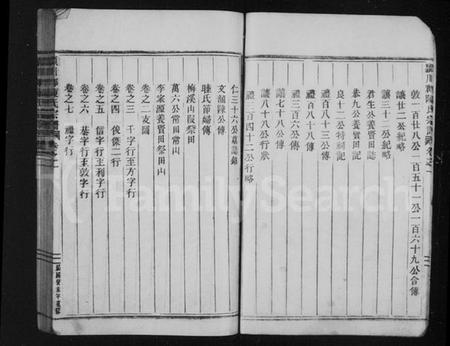 敦一百廿八公一百五十一公一百六十九公合傳
讓廿二公紀略
讓三十二公紀略
君生公養賢田記
恭九公養賢田記
良十二公特祠記
禮百八十三公傳
禮百八十八傳
禮三百六公傳
讓八十八公行狀
禮一百四十二公行略
仁三十六公墓誌銘
文瀾陳公傳
睦氏節婦傳
梅溪山陂祭田
萬六公常田常山
李家源公養賢田祭田山
卷之二 支圖
卷之三 千字行至方字行
卷之四 俊傑二行
卷之五 信字行至利字行
卷之六 恭字行至敦字行
卷之七 禮字行
FamilySearch